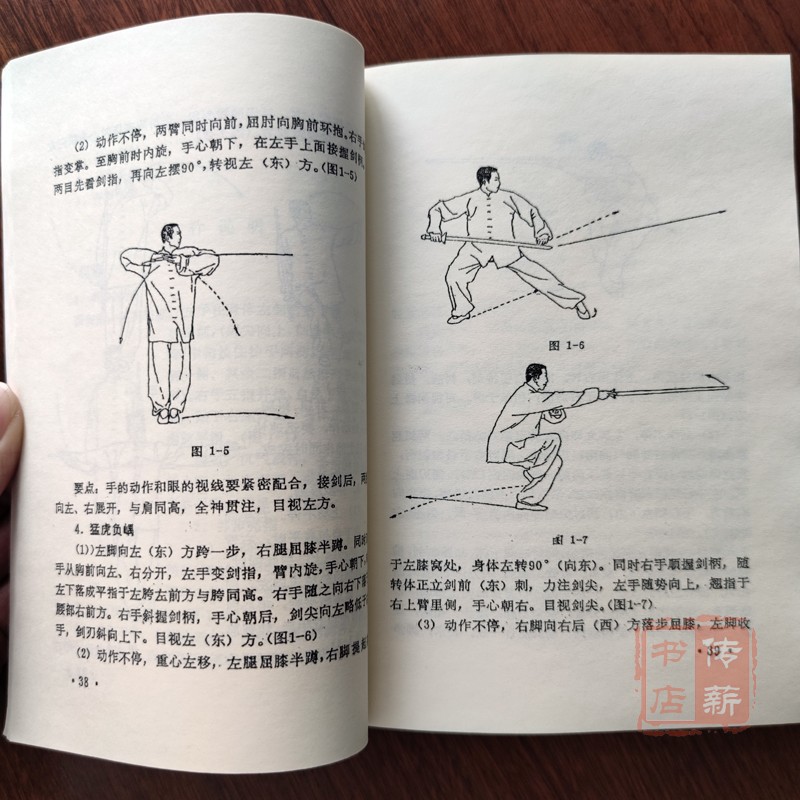 (2) 动作不停，两臂同时向前，屈肘向胸前环抱。右手
指变掌。至胸前时内旋，手心朝下，在左手上面接握剑柄。
两目先看剑指，再向左摆90°，转视左（东）方。(图1-5)
图 1-5
要点：手的动作和眼的视线要紧密配合，接剑后，两
向左、右展开，与肩同高，全神贯注，目视左方。
4．猛虎负嵎
(1))左脚向左（东）方跨一步，右腿屈膝半蹲。同时
手从胸前向左、右分开，左手变剑指，臂内旋，手心朝下，
左下落成平指于左胯左前方与胯同高。右手随之向右下落
腰部右前方。右手斜握剑柄，手心朝后，剑尖向左略低于
手，剑刃斜向上下。目视左（东）方。(图1-6)
(2) 动作不停，重心左移，左腿屈膝半蹲，右脚提起
·38·
图 1-6
图 1-7
于左膝窝处，身体左转90°(向东)。同时右手顺握剑柄，随
转体正立剑前（东）刺，力注剑尖，左手随势向上，翘指于
右上臂里侧，手心朝右。目视剑尖。(图1-7)
(3) 动作不停，右脚向右后（西）方落步屈膝，左脚收
·39·
传薪
书店